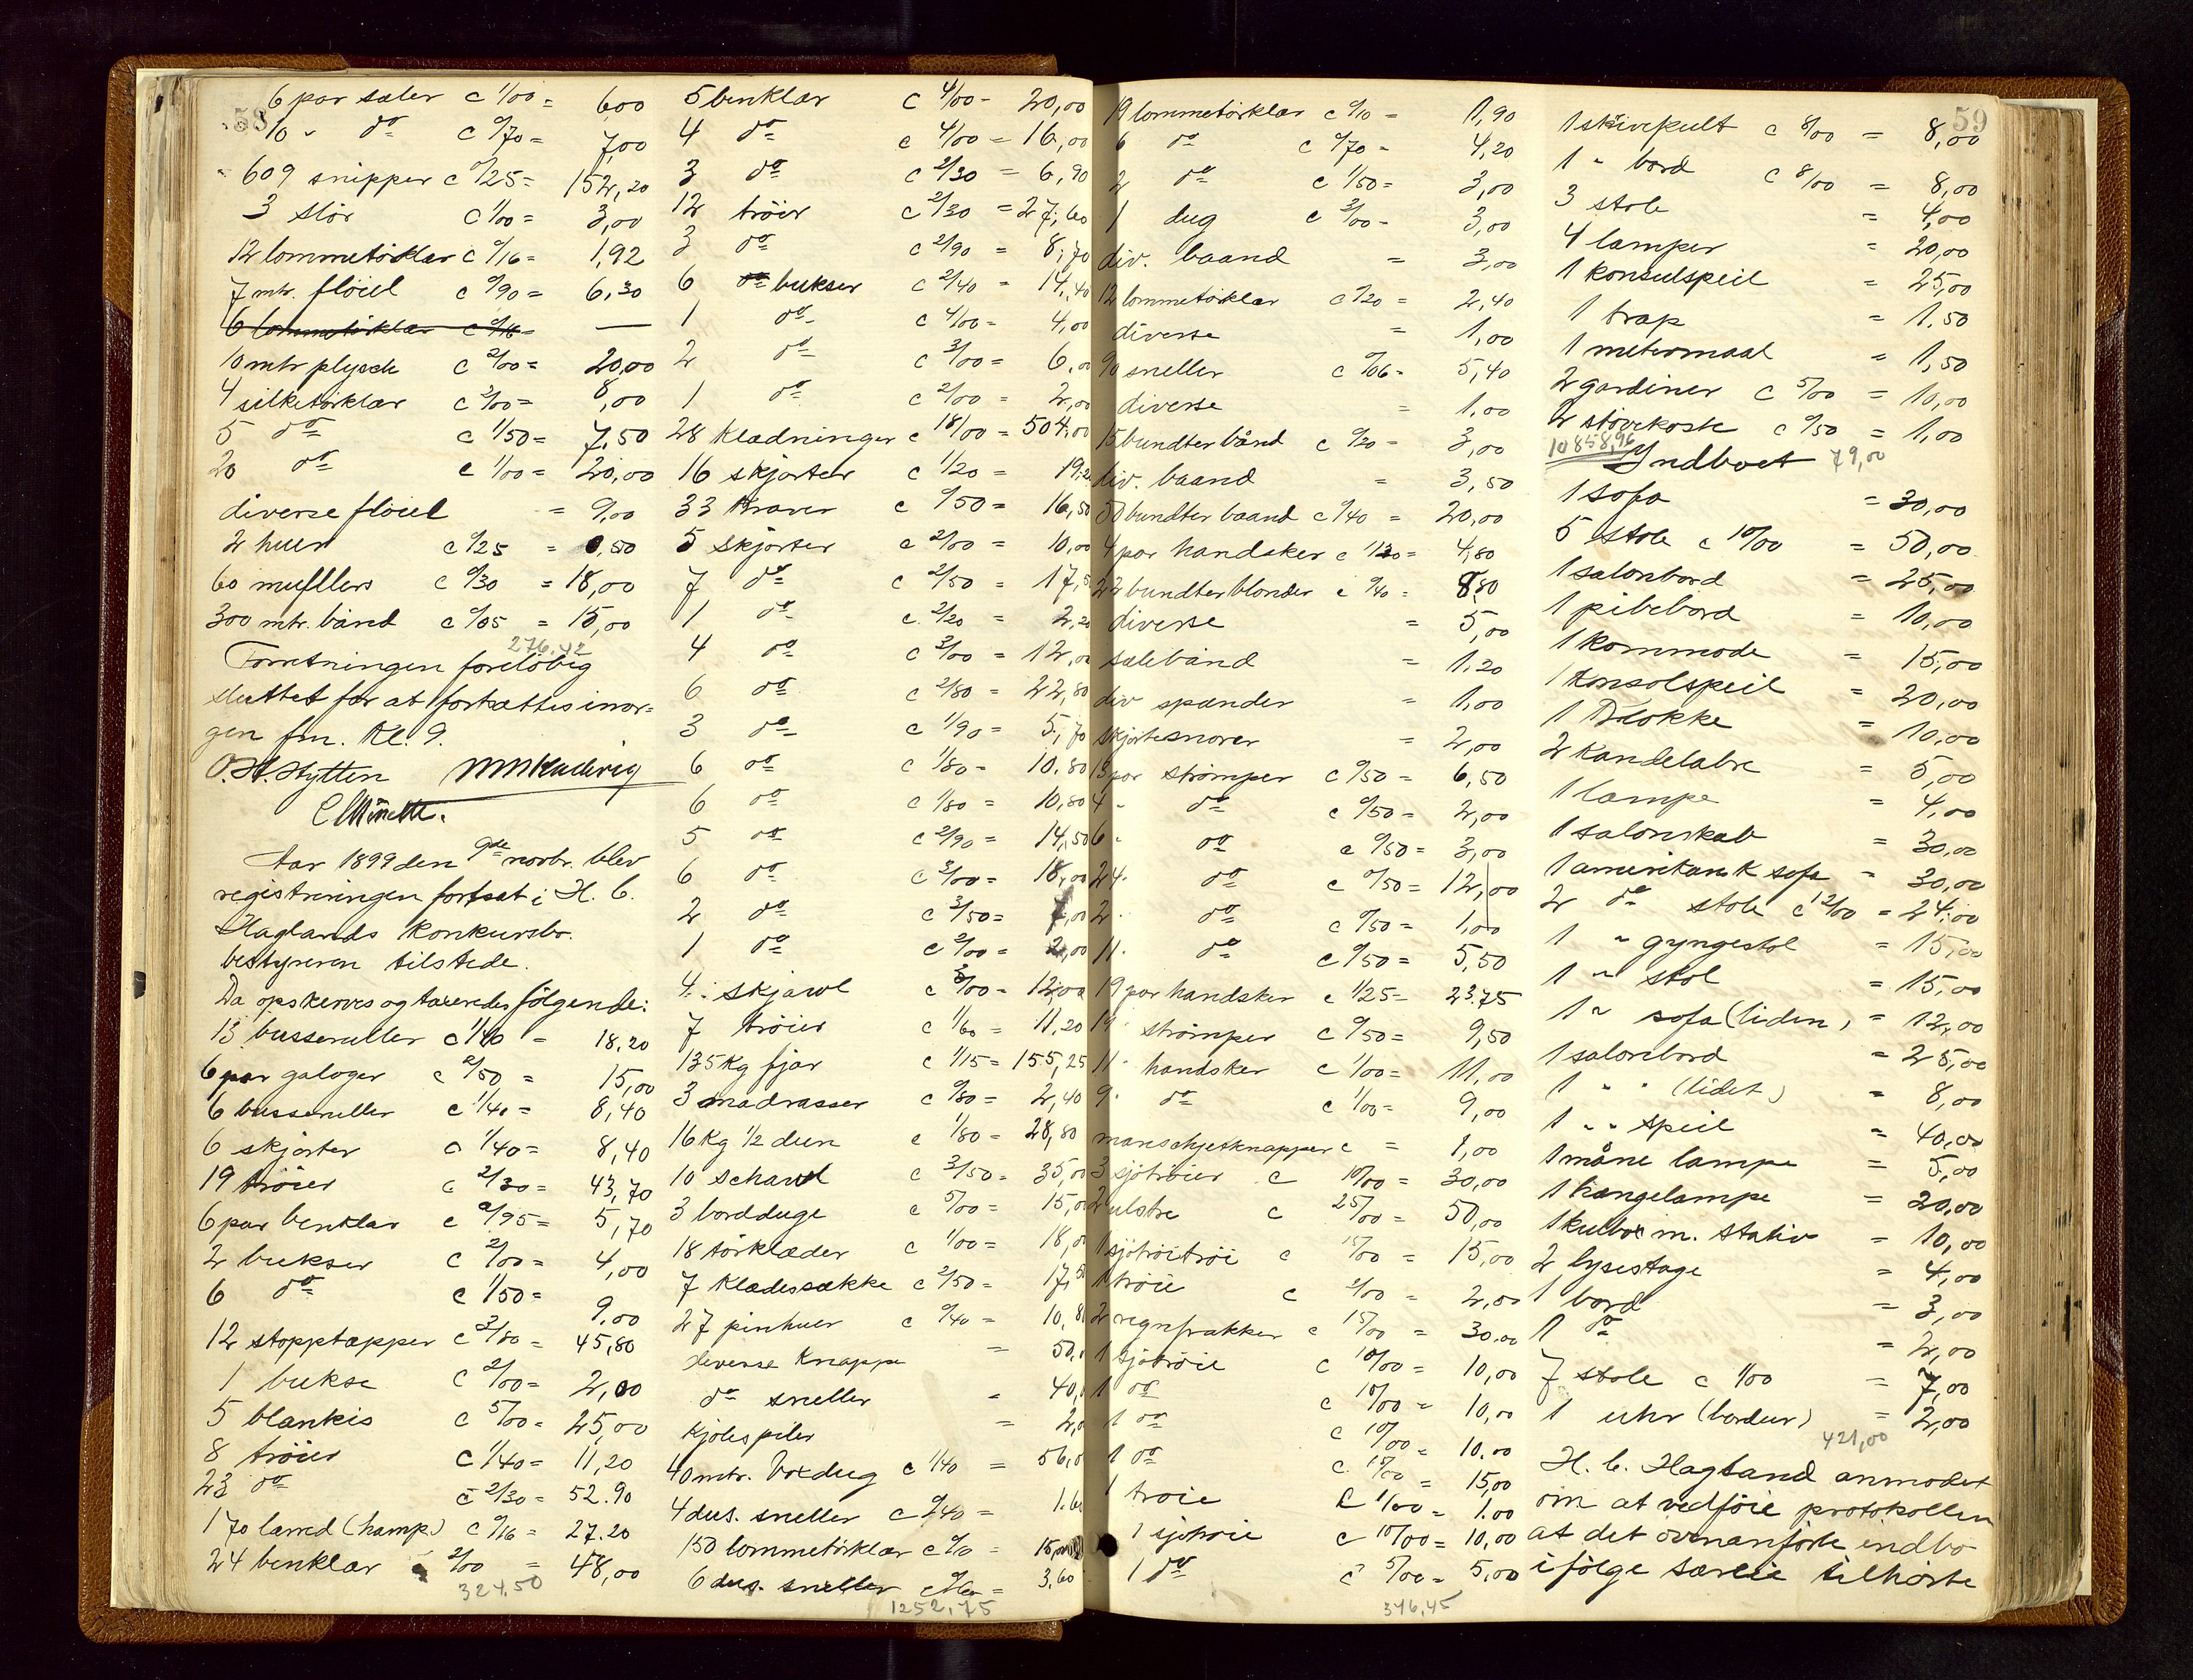 58
6 par saler c 1/00 = 6,00
10 " do c 0/70 = 7,00
609 snipper c 0/25 = 152,20
3 slør c 1/00 = 3,00
12 lommetørklær c 0/16 = 1,92
7 mtr. fløiel c 0/90 = 6,30
6 lommetørklær c 0/16 = —
10 mtr plysch c 2/00 = 20,00
4 silketørklær c 2/00 = 8,00
5 do c 1/50 = 7,50
20 do c 1/00 = 20,00
diverse fløiel = 9,00
2 huer c 0/25 = 0,50
60 mufflers c 0/30 = 18,00
300 mtr. bånd c 0/05 = 15,00
276,42
Forretningen foreløbig
sluttet for at fortsættes imor=
gen fm. Kl. 9.
O. H. Hytten
Aar 1899 den 9de novbr. blev
registreringen fortsat i H. C.
Haglands Konkursbo.
bestyreren tilstede.
Da opskreves og taxeredes følgende:
13 busseruller c 1/40 = 18,20
6 par galoger c 2/50 = 15,00
6 busseruller c 1/40 = 8,40
6 skjorter c 1/40 = 8,40
19 trøier c 2/30 = 43,70
6 par benklær c 0/95 = 5,70
2 bukser c 2/00 = 4,00
6 do c 1/50 = 9,00
12 stopptæpper c 3/80 = 45,80
1 bukse c 2/00 = 2,00
5 blankis c 5/00 = 25,00
8 trøier c 1/40 = 11,20
23 do c 2/30 = 52.90
170 lærred (hamp.) c 0/16 = 27.20
24 benklær c 2/00 = 48,00
324,50
5 benklær c 4/00 - 20,00
4 do c 4/00 = 16,00
3 do c 2/30 = 6,90
12 trøier c 2/30 = 27,60
3 do c 2/90 = 8,70
6 do bukser c 2/40 = 14,40
1 do c 4/00 = 4,00
2 do c 3/00 = 6,00
1 do c 2/00 = 2,00
28 Klædninger c 18/00 = 504,00
16 skjorter c 1/20 = 19,2
33 Kraver c 0/50 = 16,50
5 skjorter c 2/00 = 10,00
7 do c 2/50 = 17,5
1 do c 2/20 = 2,20
4 do c 3/00 = 12,00
6 do c 2/80 = 22,80
3 do c 1/90 = 5,70
6 do c 1/80 = 10.80
6 do c 1/80 = 10,80
5 do c 2/90 = 14,50
6 do c 3/00 = 18,00
2 do c 3/50 = 7,00
1 do c 2/00 = 2,00
4 skjawl c 3/00 = 12,00
7 trøier c 1/60 = 11,20
135 Kg fjær c 1/15 = 155,25
3 madrasser c 0/80 = 2,40
16 Kg 1/2 dun c 1/80 = 28,80
10 schawl c 3/50 = 35,00
3 bordduge c 5/00 = 15,00
18 tørklæder c 1/00 = 18,00
7 Klædessække c 2/50 = 17,50
27 pinhuer c 0/40 = 10,8
diverse Knappe = 50,
do sneller = 40,
Kjolespiler = 2,0
40 mtr. Voxdug c 1/40 = 56,0
4 dus. sneller c 0/40 = 1.60
150 lommetørklær c 0/10 = 15,00
6 dus. sneller c 0/60 = 3,60
1252,75
59
19 lommetørklær c 0/10 = 1,90
6 do c 0/70 = 4,20
2 do c 1/50 = 3,00
1 dug c 3/00 = 3,00
div. baand = 3,00
12 lommetørklær c 0/20 = 2,40
diverse = 1,00
90 sneller c 0/06 = 5,40
diverse = 1,00
15 bundter bånd c 0/20 = 3,00
div. baand = 3,50
50 bundter baand c 0/40 = 20,00
4 par handsker c 1/20 = 4,80
22 bundter blonder c 0/40 = 8,80
diverse = 5,00
salebånd = 1.20
div spænder = 1,00
skjortesnorer = 2,00
13 par strømper c 0/50 = 6,50
4 " do c 0/50 = 2,00
6 " do c 0/50 = 3,00
24 " do c 0/50 = 12,00
2 " do c 0/50 = 1,00
11 " do c 0/50 = 5,50
19 par handsker c 1/25 = 23.75
19 " strømper c 0/50 = 9,50
11 " handsker c 1/00 = 11,00
9 " do c 1/00 = 9,00
manschjetknapper c = 1,00
3 sjøtrøier c 10/00 = 30,00
2 ulstre c 25/00 = 50,00
1 sjøtrøitrøi c 15/00 = 15,00
1 trøie c 2/00 = 2,00
2 regnfrakker c 15/00 = 30.00
1 sjøtrøie c 10/00 = 10,00
1 do c 10/00 = 10,00
1 do c 10/00 = 10,00
1 do c 15/00 = 15,00
1 trøie c 1/00 = 1.00
1 sjøtrøie c 10/00 = 10,00
1 do c 5/00 = 5,00
346,45
1 skivepult c 8/00 = 8,00
1 " bord c 8/00 = 8,00
3 stole = 4,00
4 lamper = 20,00
1 konsulspeil = 25,00
1 trap = 1.50
1 metermaal = 1,50
2 gardiner c 5/00 = 10,00
2 støvekoste c 0/50 = 1,00
10858,96 Indboet 79,00
1 sofa = 30,00
5 stole c 10/00 = 50,00
1 salonbord = 25,00
1 pibebord = 10,00
1 Kommode = 15,00
1 Konsolspeil = 20,00
1 Klokke = 10,00
2 Kandelabre = 5,00
1 lampe = 4,00
1 salonskab = 30,00
1 amerikansk sofa = 30,00
2 do stole c 12/00 = 24,00
1 " gyngestol = 15,00
1 " stol = 15,00
1 " sofa (liden) = 12,00
1 salonbord = 25,00
1 " " (lidet) = 8,00
1 " " speil = 40,00
1 måne lampe = 5,00
1 hængelampe = 20,00
1 kulbox m. stativ = 10,00
2 lysestage = 4,00
1 bord = 3,00
1 do = 2,00
7 stole c 1/00 = 7,00
1 uhr (bordur) = 2,00
421,00
H. C. Hagland anmodet
om at vedføie protokollen
at det ovenanførte indbo
ifølge særeie tilhørte